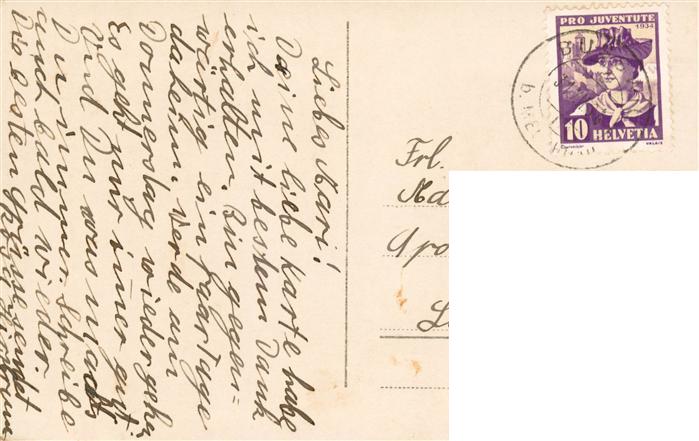 Liebe Mari!
Deine liebe Karte habe
ich mit bestem Dank
erhalten. Bin gegen=
wärtig ein paar Tage
daheim. Werde am
Donnerstag wieder gehn
Es geht mir imer gut.
Und Du was machst
Du immer. Schreibe
uns bald wieder.
Die besten Grüsse sendet
Frl.
Apo
PRO JUVENTUTE
1934
10 HELVETIA
WALLIS